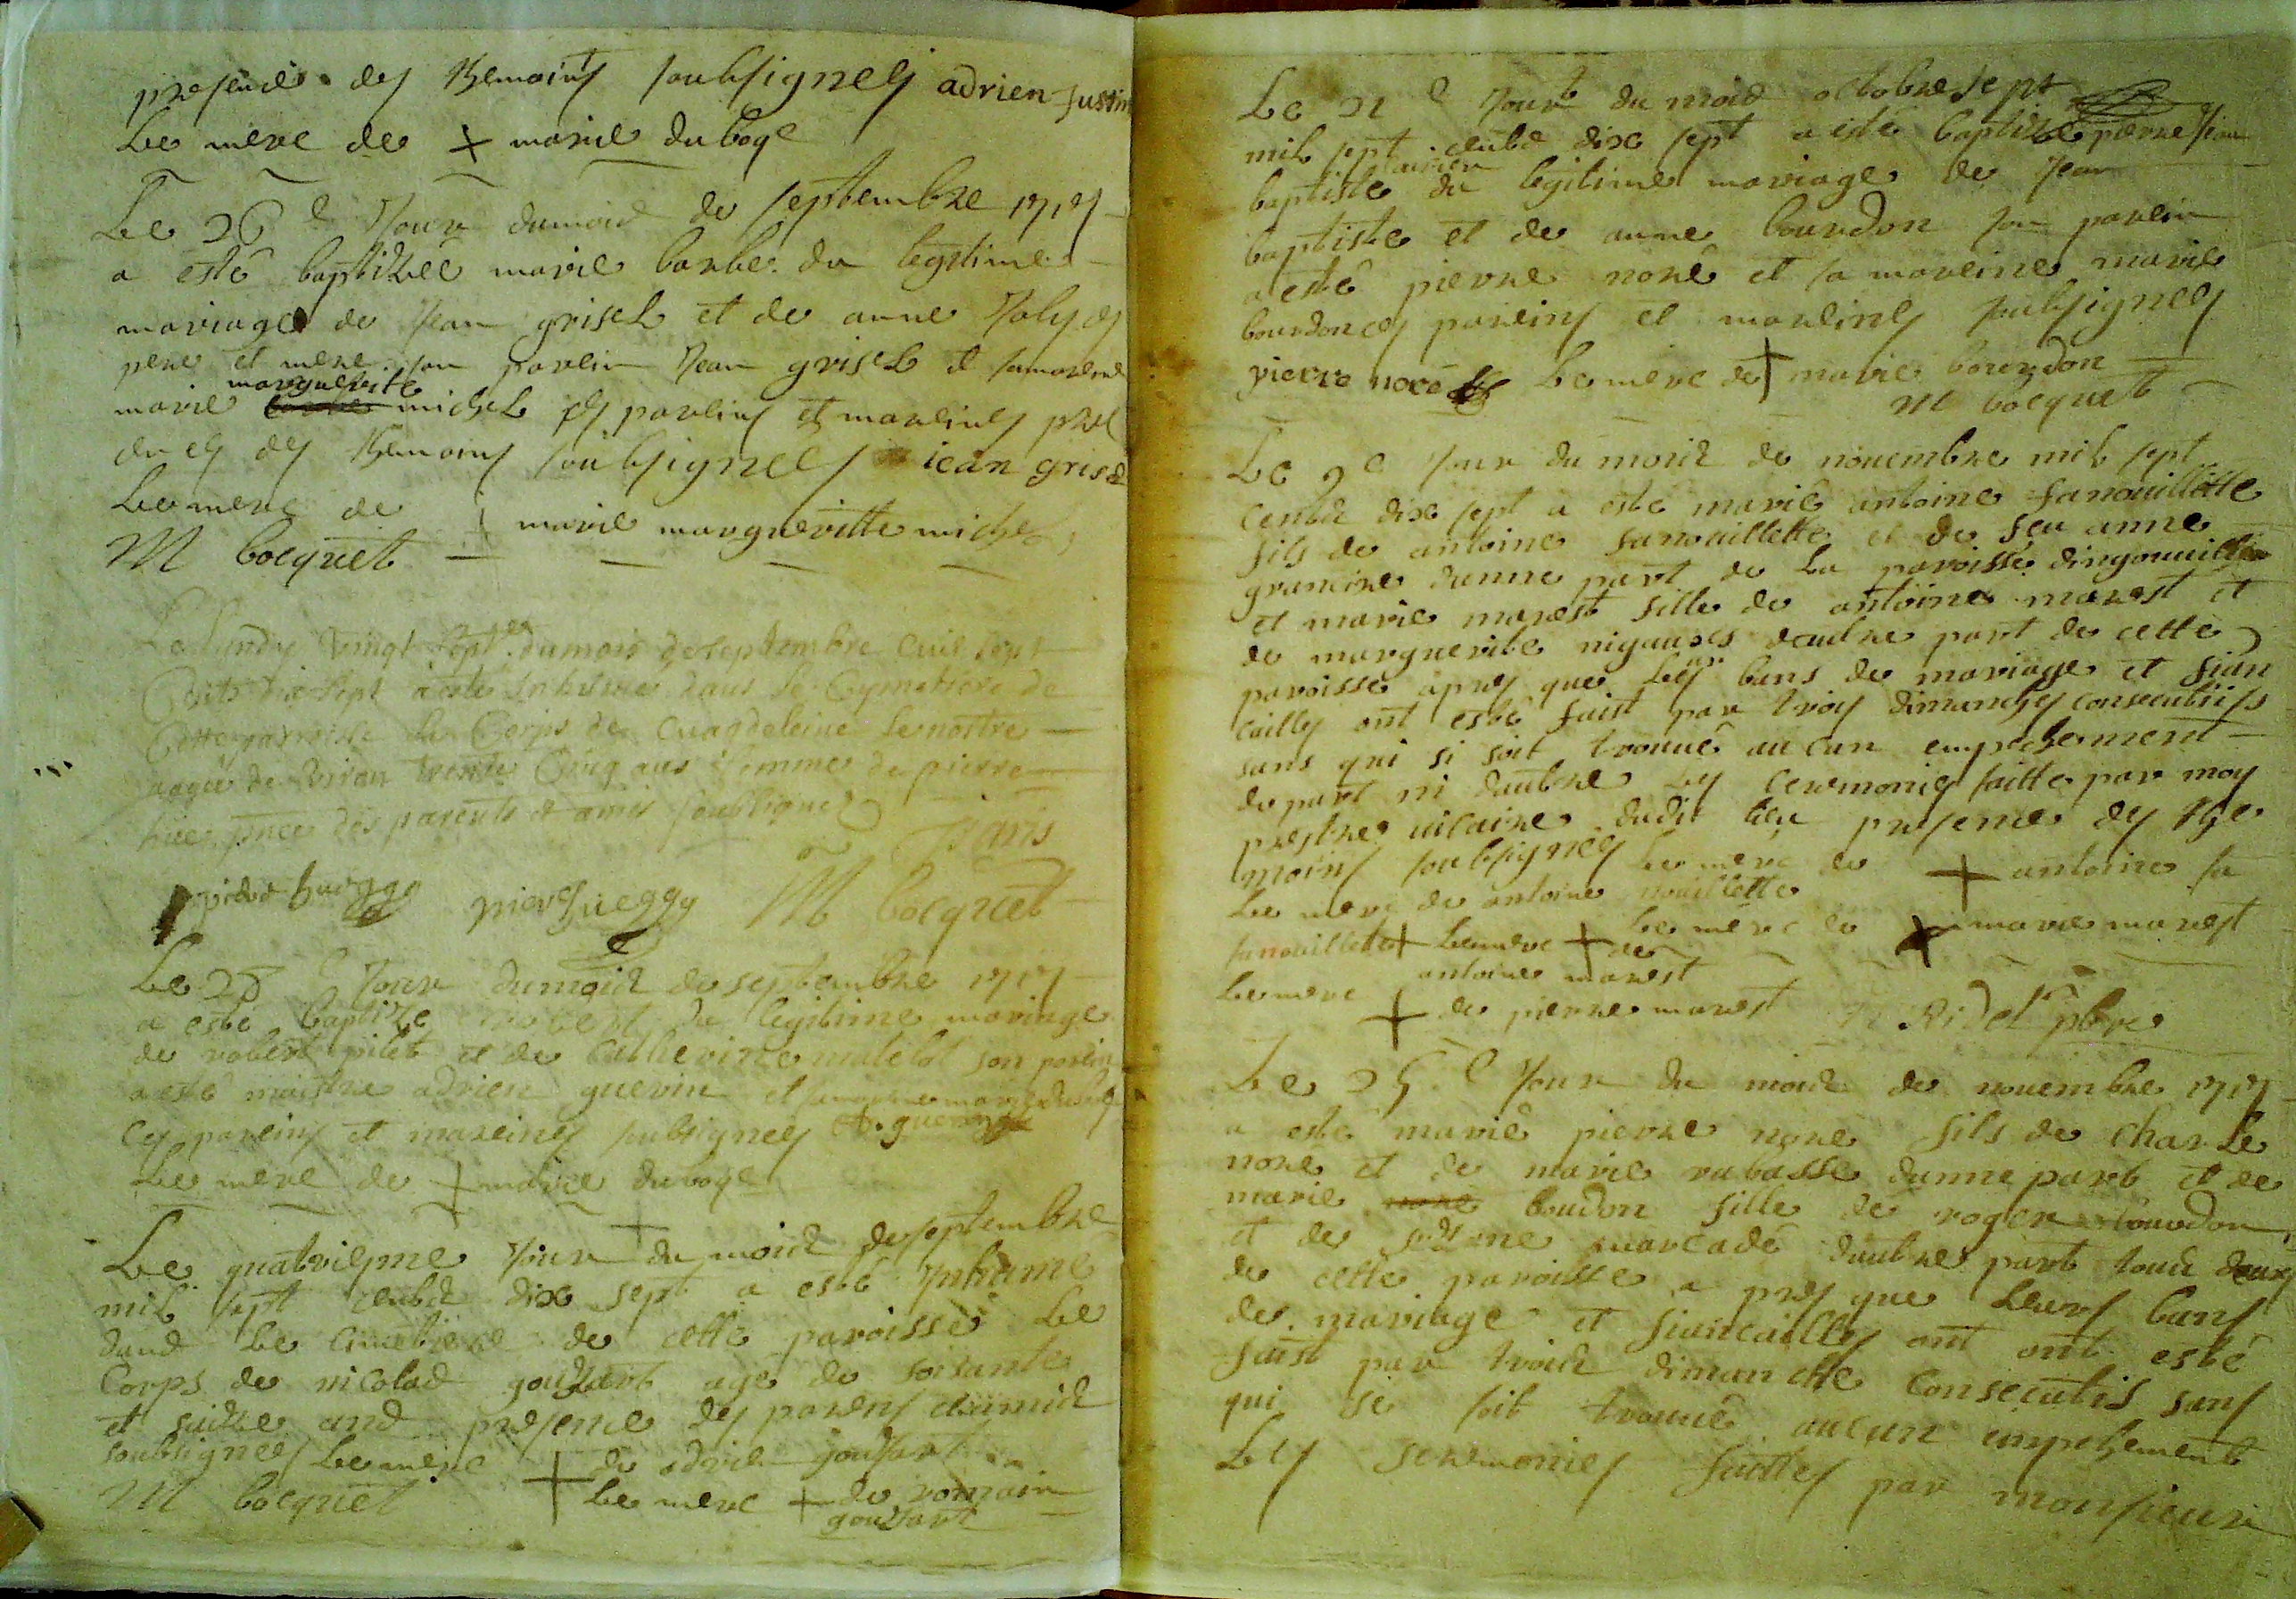 presence des themoins soubsignes adrien justin
le merc de + marie duboge
Le 26e jour du mois de septembre 1717
a esté baptizée marie barbe du legitime
mariage de jean grisel et de anne
pere et mere son parein jean grisel et sa mareine
marie marguerite michel ces pareins et mareines pres
ences des themoins soubsignes jean grisel
le merc de + marie margueritte michel
M bocquet
Le lundy vingt sept du mois de septembre mil sept
cents dix sept a esté inhumée dans le cymetiere de
cette parroisse le corps de magdeleine lenostre
aagée de viron trente cinq ans femme de pierre
hüe pnce des parents et amis soubsignez
M bocquet
Le 28 jour du mois de septembre 1717
a esté baptize robert du legitime mariage
de robert pilet et de catherine matelot son parein
a esté maistre adrien guerin et sa mareine marie duboge
ces pareins et mareines soubsignes A. guerin
le merc de + marie duboge
Le quatriesme jour du mois de septembre
mil sept cents dix sept a esté inhume
dans le cimetiere de cette paroisse le
corps de nicolas goussart age de soixante
et ans presence des parens et amis
soubsignees le merc + de adrien goussart
M bocquet le merc + de romain
goussart
Le 21 e jour du mois octobre sept
mil sept cents dix sept a esté baptizé pierre jean
baptiste du legitime mariage de jean
baptiste et de anne bourdon son parein
a esté pierre noré et sa mareine marie
bourdon ces pareins et mareines soubsignes
pierre noré le merc de + marie bourdon
M bocquet
Le 9e jour du mois de novembre mil sept
cents dix sept a esté marié antoine fanouillette
fils de antoine fanouillette et de feu anne
dunne part de la paroisse dingouville
et marie marest fille de antoine marest et
de marguerite nigauses dautre part de cette
paroisse apres que les bans de mariage et fian
cailles ont esté faist par trois dimanches consecutiifs
sans qui si soit trouué aucun empechement
de part ni dautre les ceremonies faitte par moy
prestre vicaire dudit lieu presence des the
moins soubsignes le merc de + antoine fa
nouillette
le merc de antoine
fanouillette + le merc + de
antoine marest
le merc de + marie marest
le merc + de pierre marest Ridel pbre
Le 25 e jour du mois de nouembre 1717
a esté marié pierre nore fils de charle
nore et de marie rabasse dunne part et de
marie nore boudon fille de roger bourdon
et de marcadé dautre part tous deux
de cette paroisse a pres que leurs bans
de mariage et fiancailles ont ont esté
faist par trois dimanche consecutis sans
qui se soit trouué aucun empechement
les seremonies faittes par monsieur